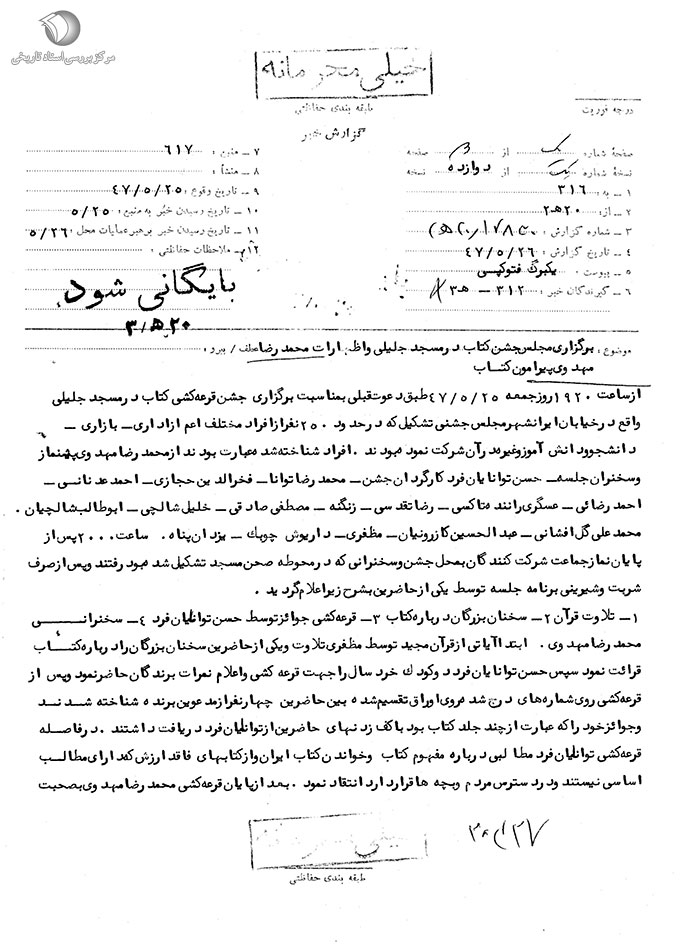 مرکز بررسی اسناد تاریخی
خیلی محرمانه
طبقه بندی حفاظتی
درجه فوریت
گزارش خبر
صفحهٔ شماره یک از ۳ صفحه
نسخهٔ شماره یک از دوازده نسخه
۱ – به : ۳۱۶
۲ – از : ۲۰هـ۲
۳ – شماره گزارش :
۴ – تاریخ گزارش : ۴۷/۵/۲۶
۵ – پیوست : یکبرگ فتوکپی
۶ – گیرندگان خبر : ۳۱۲ – هـ۳
۷ – منبع : ۶۱۷
۸ – منشأ :
۹ – تاریخ وقوع : ۴۷/۵/۲۵
۱۰ – تاریخ رسیدن خبر به منبع : ۵/۲۵
۱۱ – تاریخ رسیدن خبر برهبر عملیات محل : ۵/۲۶
۱۲ – ملاحظات حفاظتی :
بایگانی شود
۲۰هـ۳
موضوع : برگزاری مجلس جشن کتاب در مسجد جلیلی واظهارات محمد رضا
عطف / پیرو : مهدوی پیرامون کتاب
ازساعت ۱۹۲۰ روزجمعه ۴۷/۵/۲۵ طبق دعوت قبلی بمناسبت برگزاری جشن قرعه کشی کتاب درمسجد جلیلی
واقع درخیابان ایرانشهر مجلس جشنی تشکیل که درحدود ۲۵۰ نفرازافراد مختلف اعم ازاداری – بازاری –
دانشجوودانش آموزوغیره درآن شرکت نموده بودند . افراد شناخته شده عبارت بودند ازمحمد رضا مهدوی پیشنماز
وسخنران جلسه – حسن توانایان فرد کارگردان جشن – محمد رضا توانا – فخرالدین حجازی – احمد عدنانی –
احمد رضائی – عسگری راننده تاکسی – رضا تقدسی – زنگنه – مصطفی صادقی – خلیل شالچی – ابوطالب شالچیان .
محمد علی گل افشانی – عبدالحسین کازرونیان – مظفری – داریوش چوبک – یزدان پناه . ساعت ۲۰۰۰ پس از
پایان نماز جماعت شرکت کنندگان بمحل جشن وسخنرانی که درمحوطه صحن مسجد تشکیل شده بود رفتند وپس ازصرف
شربت وشیرینی برنامه جلسه توسط یکی ازحاضرین بشرح زیراعلام گردید .
۱ – تلاوت قرآن ۲ – سخنان بزرگان درباره کتاب ۳ – قرعه کشی جوائز توسط حسن توانایان فرد ۴ – سخنرانی
محمد رضا مهدوی . ابتدا آیاتی ازقرآن مجید توسط مظفری تلاوت ویکی ازحاضرین سخنان بزرگان رادرباره کتاب
قرائت نمود سپس حسن توانایان فرد دوکودک خرد سال راجهت قرعه کشی واعلام نمرات برندگان حاضرنمود وپس از
قرعه کشی روی شماره های درج شده روی اوراق تقسیم شده بین حاضرین چهارنفرازمدعوین برنده شناخته شدند
وجوائزخود راکه عبارت ازچند جلد کتاب بود باکف زدنهای حاضرین ازتوانایان فرد دریافت داشتند . درفاصله
قرعه کشی توانایان فرد مطالبی درباره مفهوم کتاب وخواندن کتاب ایران وازکتابهای فاقد ارزش که دارای مطالب
اساسی نیستند ودردسترس مردم وبچه ها قراردارد انتقاد نمود . بعد ازپایان قرعه کشی محمد رضا مهدوی بصحبت
طبقه بندی حفاظتی